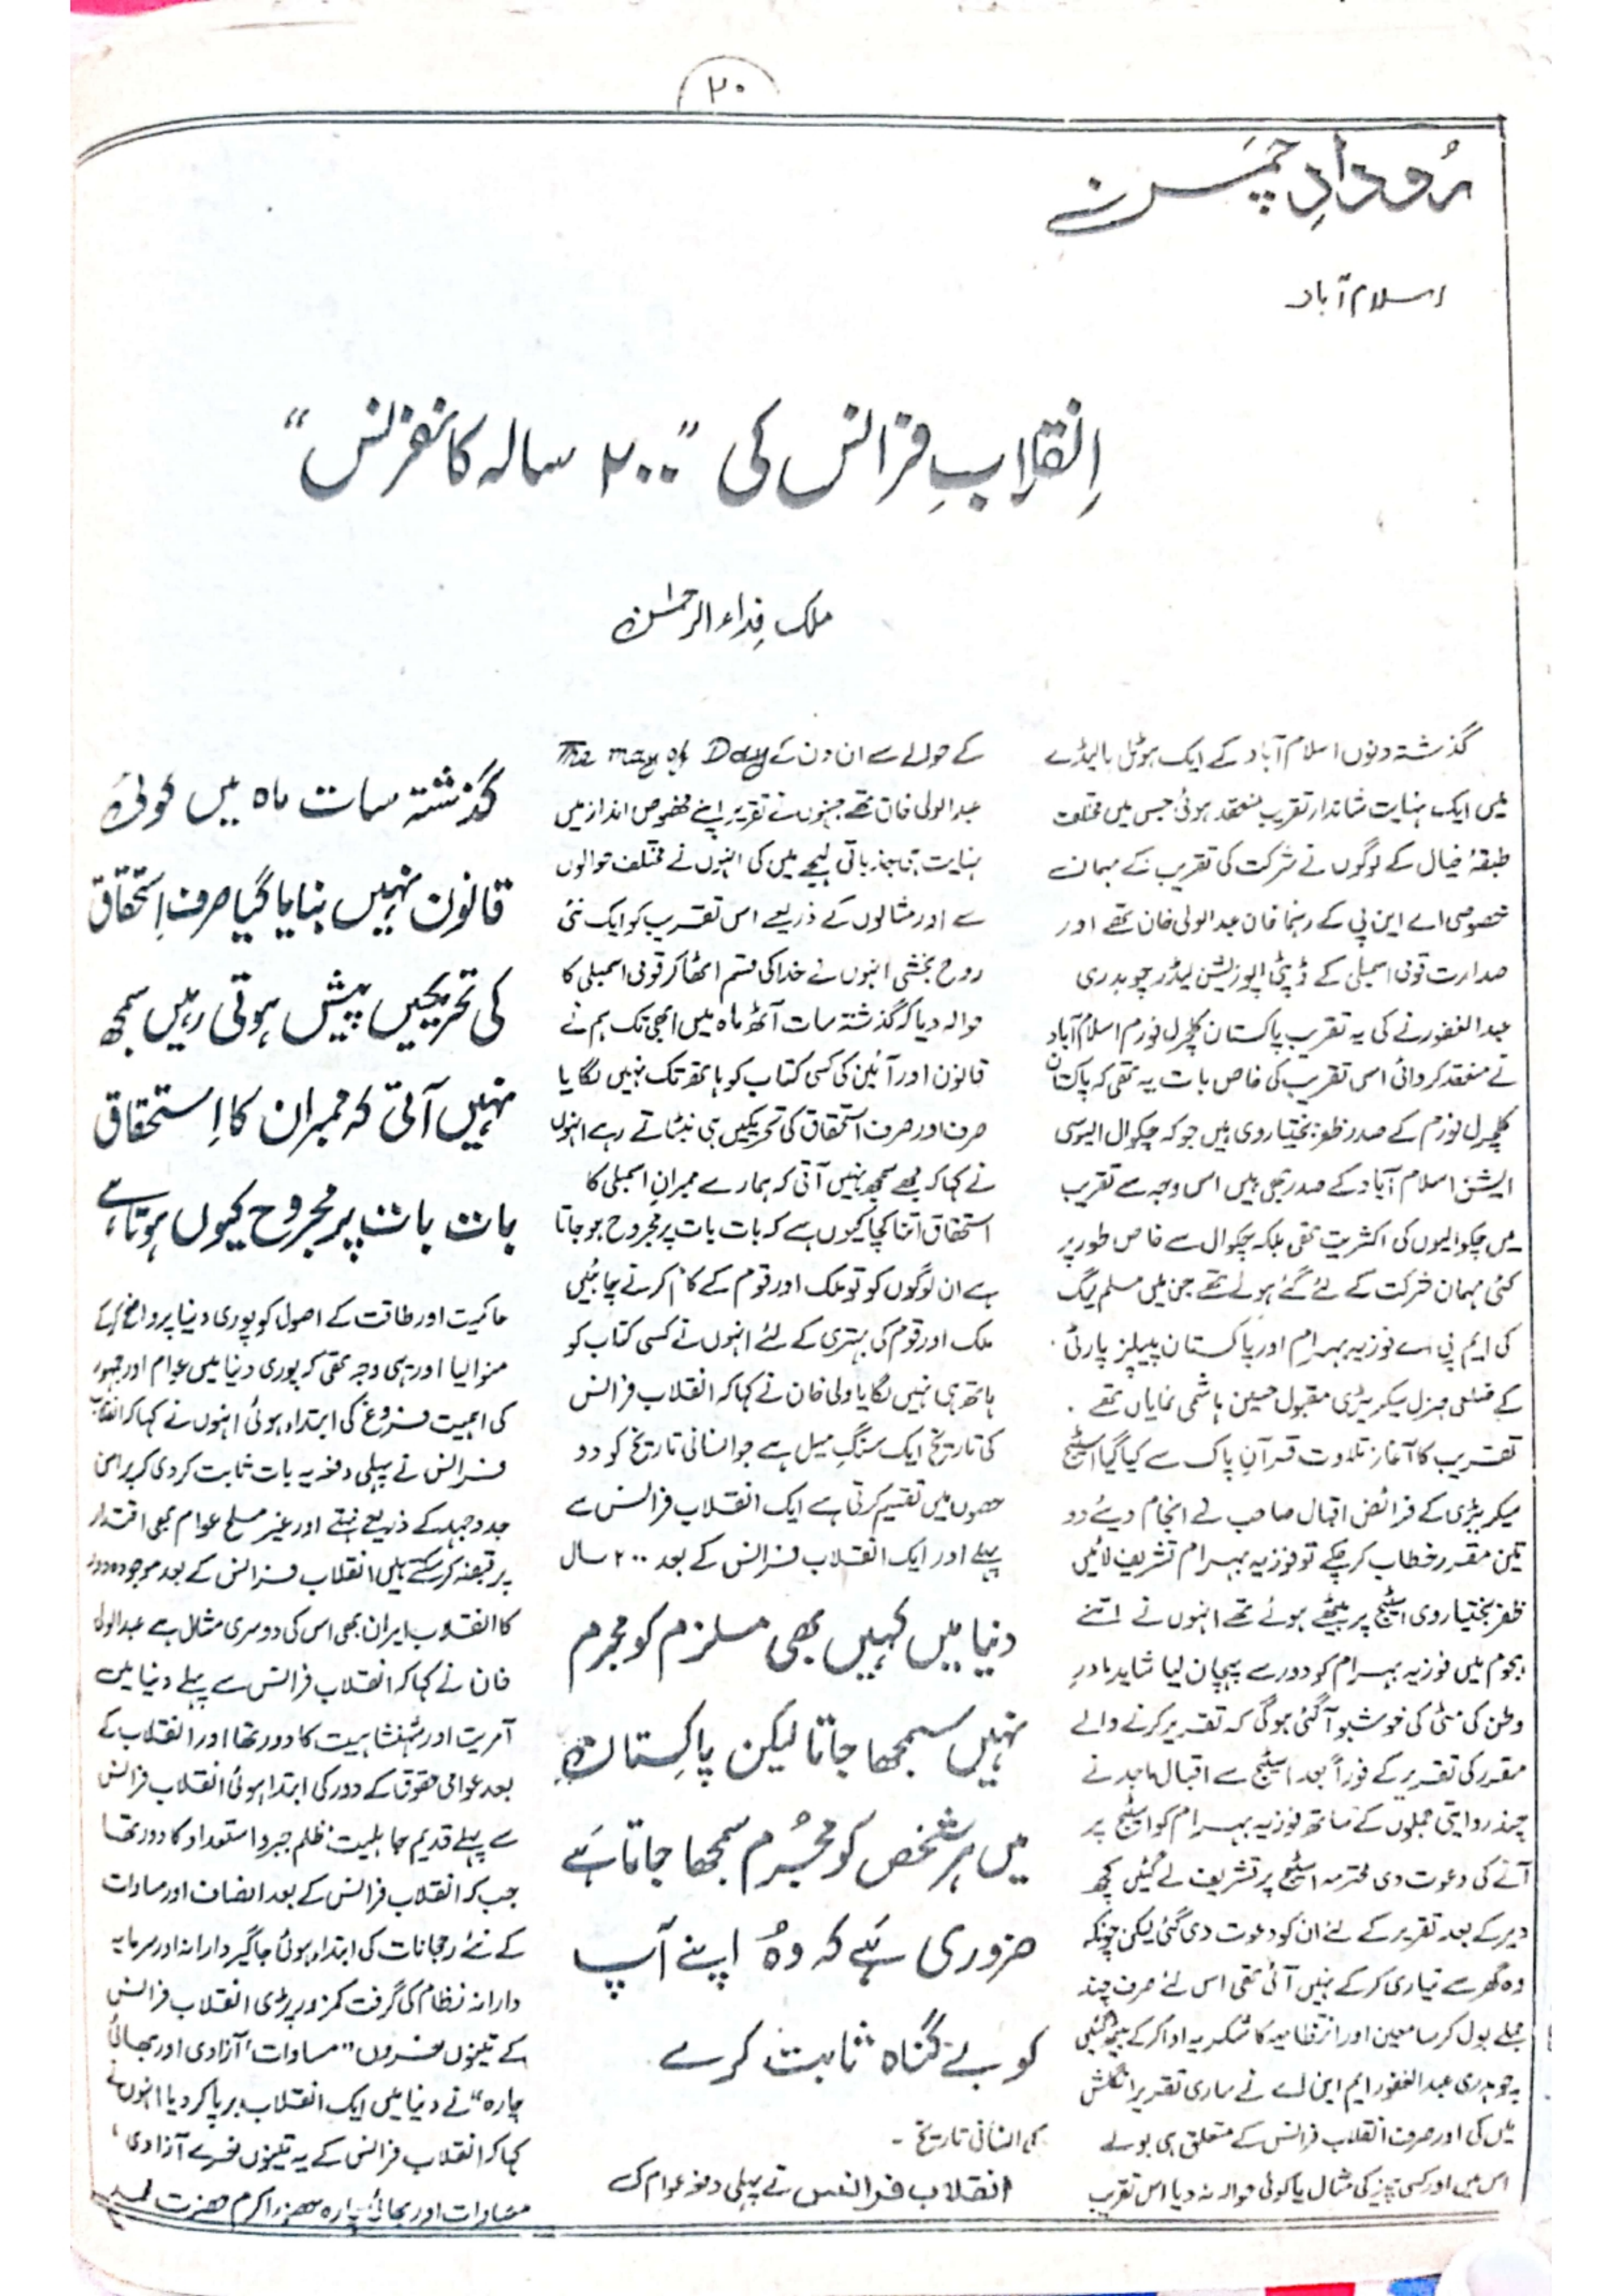 ۲۰
رُودادِ چمَن
اسلام آباد
اِنقلابِ فرانس کی "۲۰۰ سالہ کانفرنس"
ملک فِداء الرحمٰن
گذشتہ دنوں اسلام آباد کے ایک ہوٹل ہالیڈے
میں ایک نہایت شاندار تقریب منعقد ہوئی جس میں مختلف
طبقۂ خیال کے لوگوں نے شرکت کی تقریب کے مہمان
خصوصی اے این پی کے رہنما خان عبدالولی خان تھے اور
صدارت قومی اسمبلی کے ڈپٹی اپوزیشن لیڈر چوہدری
عبدالغفور نے کی یہ تقریب پاکستان کلچرل فورم اسلام آباد
نے منعقد کروائی اس تقریب کی خاص بات یہ تھی کہ پاکستان
کلچرل فورم کے صدر ظفر بختیاروی ہیں جو کہ چکوال ایسوسی
ایشن اسلام آباد کے صدر بھی ہیں اس وجہ سے تقریب
میں چکوالیوں کی اکثریت تھی بلکہ چکوال سے خاص طور پر
کئی مہمان شرکت کے لئے گئے ہوئے تھے جن میں مسلم لیگ
کی ایم پی اے فوزیہ بہرام اور پاکستان پیپلز پارٹی
کے ضلعی جنرل سیکریٹری مقبول حسین ہاشمی نمایاں تھے .
تقریب کا آغاز تلاوت قرآن پاک سے کیا گیا اسٹیج
سیکریٹری کے فرائض اقبال صاحب نے انجام دیئے دو
تین مقرر خطاب کر چکے تو فوزیہ بہرام تشریف لائیں
ظفر بختیاروی اسٹیج پر بیٹھے ہوئے تھے انہوں نے اتنے
ہجوم میں فوزیہ بہرام کو دور سے پہچان لیا شاید مادرِ
وطن کی مٹی کی خوشبو آ گئی ہوگی کہ تقریر کرنے والے
مقرر کی تقریر کے فوراً بعد اسٹیج سے اقبال ماجد نے
چند روایتی جملوں کے ساتھ فوزیہ بہرام کو اسٹیج پر
آنے کی دعوت دی محترمہ اسٹیج پر تشریف لے گئیں کچھ
دیر کے بعد تقریر کے لئے ان کو دعوت دی گئی لیکن چونکہ
وہ گھر سے تیاری کر کے نہیں آئی تھی اس لئے صرف چند
جملے بول کر سامعین اور انتظامیہ کا شکریہ ادا کر کے بیٹھ گئیں
چوہدری عبدالغفور ایم این اے نے ساری تقریر انگلش
میں کی اور صرف انقلاب فرانس کے متعلق ہی بولے
اس میں اور کسی چیز کی مثال یا کوئی حوالہ نہ دیا اس تقریب
کے حوالے سے ان دن کے The may of Day
عبدالولی خان تھے جنہوں نے تقریر اپنے مخصوص انداز میں
نہایت ہی جذباتی لہجے میں کی انہوں نے مختلف حوالوں
سے اور مثالوں کے ذریعے اس تقریب کو ایک نئی
روح بخشی انہوں نے خدا کی قسم اٹھا کر قومی اسمبلی کا
حوالہ دیا کہ گذشتہ سات آٹھ ماہ میں ابھی تک ہم نے
قانون اور آئین کی کسی کتاب کو ہاتھ تک نہیں لگایا
صرف اور صرف استحقاق کی تحریکیں ہی نبٹاتے رہے انہوں
نے کہا کہ مجھے سمجھ نہیں آتی کہ ہمارے ممبران اسمبلی کا
استحقاق اتنا کچا کیوں ہے کہ بات بات پر مجروح ہو جاتا
ہے ان لوگوں کو تو ملک اور قوم کے کام کرنے چاہئیں
ملک اور قوم کی بہتری کے لئے انہوں نے کسی کتاب کو
ہاتھ ہی نہیں لگایا ولی خان نے کہا کہ انقلاب فرانس
کی تاریخ ایک سنگ میل ہے جو انسانی تاریخ کو دو
حصوں میں تقسیم کرتی ہے ایک انقلاب فرانس سے
پہلے اور ایک انقلاب فرانس کے بعد ۲۰۰ سال
دنیا میں کہیں بھی مسلزم کو مجرم
نہیں سمجھا جاتا لیکن پاکستان
میں ہر شخص کو مجُرم سمجھا جاتا ہَے
ضروری ہَے کہ وہُ اپنے آپ
کو بے گناہ ثابت کرے
کی انسانی تاریخ ۔
انقلاب فرانس نے پہلی دفعہ عوام کی
گذشتہ سات ماہ میں کوئی
قانون نہیں بنایا گیا صرف اِستحقاق
کی تحریکیں پیش ہوتی رہیں سمجھ
نہیں آتی کہ ممبران کا اِستحقاق
بات بات پر مجروح کیوں ہوتا ہے
حاکمیت اور طاقت کے اصول کو پوری دنیا پر واضح کرکے
منوالیا اور یہی وجہ تھی کہ پوری دنیا میں عوام اور جمہور
کی اہمیت فروغ کی ابتداء ہوئی انہوں نے کہا کہ انقلاب
فرانس نے پہلی دفعہ یہ بات ثابت کر دی کہ پرامن
جدوجہد کے ذریعے نہتے اور غیر مسلح عوام بھی اقتدار
پر قبضہ کر سکتے ہیں انقلاب فرانس کے بعد موجودہ دور
کا انقلاب ایران بھی اس کی دوسری مثال ہے عبدالولی
خان نے کہا کہ انقلاب فرانس سے پہلے دنیا میں
آمریت اور شہنشاہیت کا دور تھا اور انقلاب کے
بعد عوامی حقوق کے دور کی ابتدا ہوئی انقلاب فرانس
سے پہلے قدیم جاہلیت ظلم جبر و استعداد کا دور تھا
جب کہ انقلاب فرانس کے بعد انصاف اور مساوات
کے نئے رجحانات کی ابتداء ہوئی جاگیر دارانہ اور سرمایہ
دارانہ نظام کی گرفت کمزور پڑی انقلاب فرانس
کے تینوں نعروں "مساوات، آزادی اور بھائی
چارہ" نے دنیا میں ایک انقلاب برپا کر دیا انہوں نے
کہا کہ انقلاب فرانس کے یہ تینوں نعرے آزادی،
مساوات اور بھائی چارہ حضور اکرم حضرت محمد